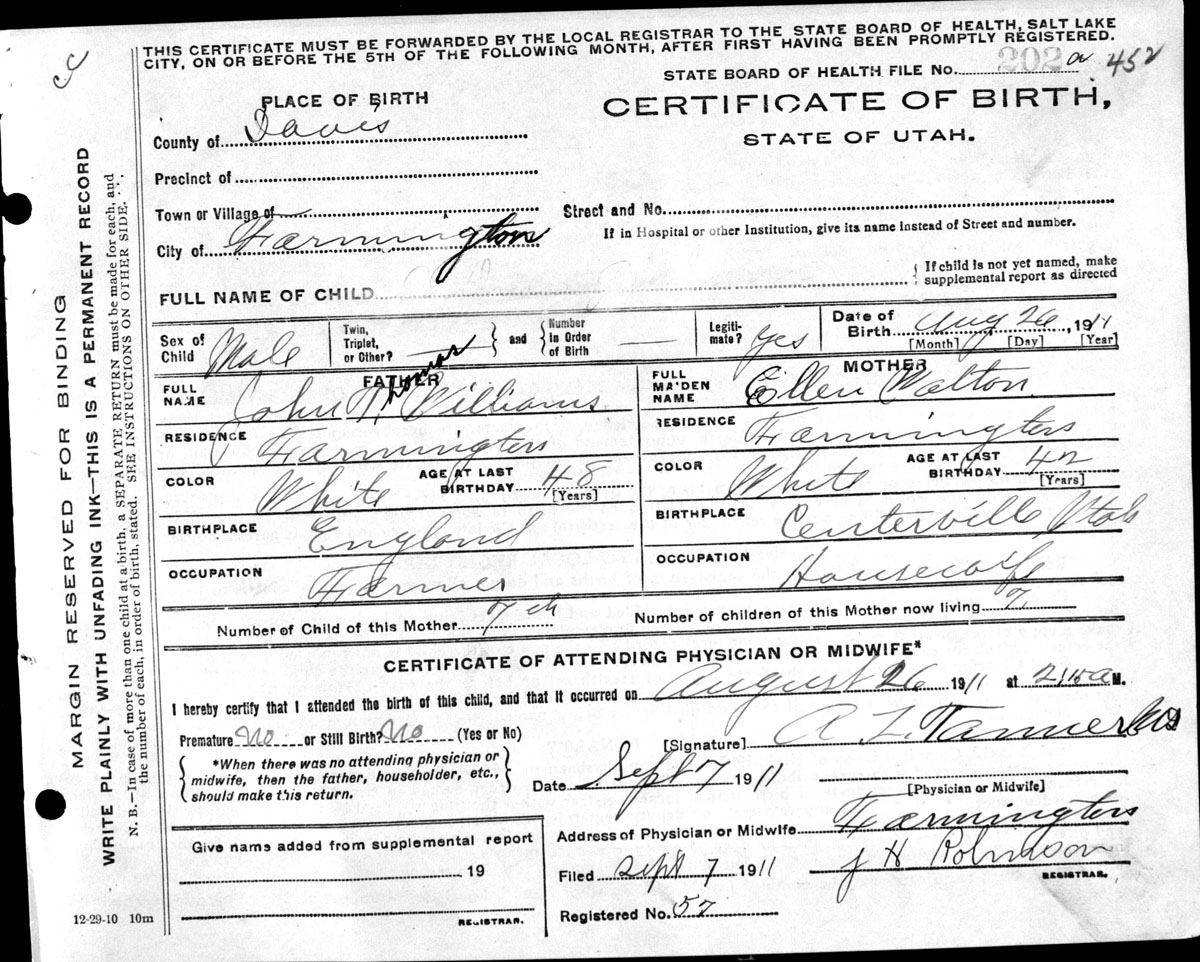 THIS CERTIFICATE MUST BE FORWARDED BY THE LOCAL REGISTRAR TO THE STATE BOARD OF HEALTH, SALT LAKE
CITY, ON OR BEFORE THE 5TH OF THE FOLLOWING MONTH, AFTER FIRST HAVING BEEN PROMPTLY REGISTERED.
STATE BOARD OF HEALTH FILE No. 202 a 452
PLACE OF BIRTH
CERTIFICATE OF BIRTH,
STATE OF UTAH.
County of Davis
Precinct of
Town or Village of
Street and No.
City of Farmington
If in Hospital or other Institution, give its name instead of Street and number.
FULL NAME OF CHILD
{ If child is not yet named, make
supplemental report as directed
Sex of Child Male
Twin, Triplet, or Other? } and { Number in Order of Birth
Legitimate? yes
Date of Birth Aug 26 1911
[Month] [Day] [Year]
FATHER
FULL NAME John Thomas Williams
RESIDENCE Farmington
COLOR White AGE AT LAST BIRTHDAY 48 [Years]
BIRTHPLACE England
OCCUPATION Farmer
MOTHER
FULL MAIDEN NAME Ellen Walton
RESIDENCE Farmington
COLOR White AGE AT LAST BIRTHDAY 42 [Years]
BIRTHPLACE Centerville, Utah
OCCUPATION Housewife
Number of Child of this Mother 7th Number of children of this Mother now living 7
CERTIFICATE OF ATTENDING PHYSICIAN OR MIDWIFE*
I hereby certify that I attended the birth of this child, and that it occurred on August 26 1911 at 2:15 a M.
Premature No or Still Birth? No (Yes or No)
[Signature] A Z Tanner
{ *When there was no attending physician or
midwife, then the father, householder, etc.,
should make this return. }
Date Sept 7 1911
[Physician or Midwife]
Address of Physician or Midwife Farmington
Give name added from supplemental report
19
REGISTRAR.
Filed Sept 7 1911 J H Robinson
REGISTRAR.
Registered No. 57
12-29-10 10m
MARGIN RESERVED FOR BINDING
WRITE PLAINLY WITH UNFADING INK—THIS IS A PERMANENT RECORD
N. B.—In case of more than one child at a birth, a SEPARATE RETURN must be made for each, and
the number of each, in order of birth, stated. SEE INSTRUCTIONS ON OTHER SIDE.